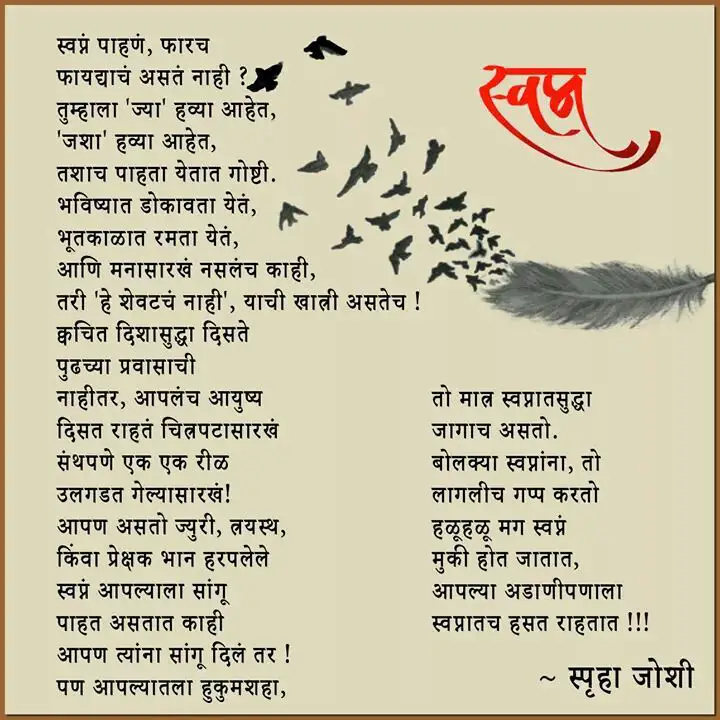 स्वप्न
स्वप्नं पाहणं, फारच
फायद्याचं असतं नाही ?
तुम्हाला 'ज्या' हव्या आहेत,
'जशा' हव्या आहेत,
तशाच पाहता येतात गोष्टी.
भविष्यात डोकावता येतं,
भूतकाळात रमता येतं,
आणि मनासारखं नसलंच काही,
तरी 'हे शेवटचं नाही', याची खात्री असतेच !
क्वचित दिशासुद्धा दिसते
पुढच्या प्रवासाची
नाहीतर, आपलंच आयुष्य
दिसत राहतं चित्रपटासारखं
संथपणे एक एक रीळ
उलगडत गेल्यासारखं!
आपण असतो ज्युरी, त्रयस्थ,
किंवा प्रेक्षक भान हरपलेले
स्वप्नं आपल्याला सांगू
पाहत असतात काही
आपण त्यांना सांगू दिलं तर !
पण आपल्यातला हुकुमशहा,
तो मात्र स्वप्नातसुद्धा
जागाच असतो.
बोलक्या स्वप्नांना, तो
लागलीच गप्प करतो
हळूहळू मग स्वप्नं
मुकी होत जातात,
आपल्या अडाणीपणाला
स्वप्नातच हसत राहतात !!!
~ स्पृहा जोशी